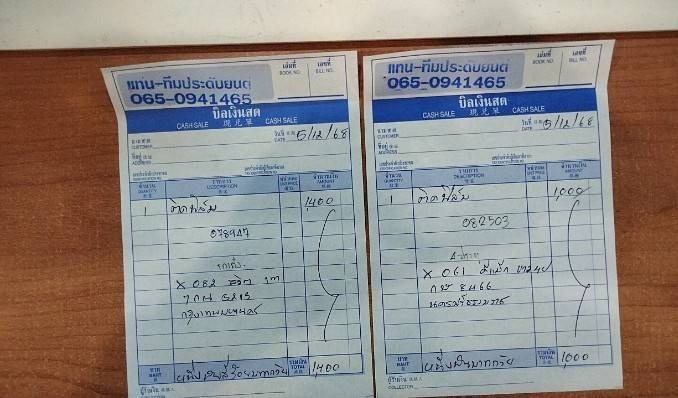 แทน-ทีมประดับยนต์
065-0941465
เล่มที่
BOOK NO.
เลขที่
BILL NO.
บิลเงินสด
CASH SALE 現兑單 CASH SALE
วันที่
DATE 5/12/68
CUSTOMER
ที่อยู่
ADDRESS
จำนวน
QUANTITY
รายการ
DESCRIPTION
หน่วยละ
UNIT PRICE
จำนวนเงิน
AMOUNT
1 ติดฟิล์ม 1,400
078947
X 082
กรุงเทพมหานคร
บาท
BAHT
หนึ่งพันสี่ร้อยบาทถ้วน
รวมเงิน
TOTAL
1,400
ผู้รับเงิน
COLLECTOR
แทน-ทีมประดับยนต์
065-0941465
เล่มที่
BOOK NO.
เลขที่
BILL NO.
บิลเงินสด
CASH SALE 現兑單 CASH SALE
วันที่
DATE 5/12/68
CUSTOMER
ที่อยู่
ADDRESS
จำนวน
QUANTITY
รายการ
DESCRIPTION
หน่วยละ
UNIT PRICE
จำนวนเงิน
AMOUNT
1 ติดฟิล์ม 1,000
082503
X 061 ดีแม็ก
8466
นครศรีธรรมราช
บาท
BAHT
หนึ่งพันบาทถ้วน
รวมเงิน
TOTAL
1,000
ผู้รับเงิน
COLLECTOR